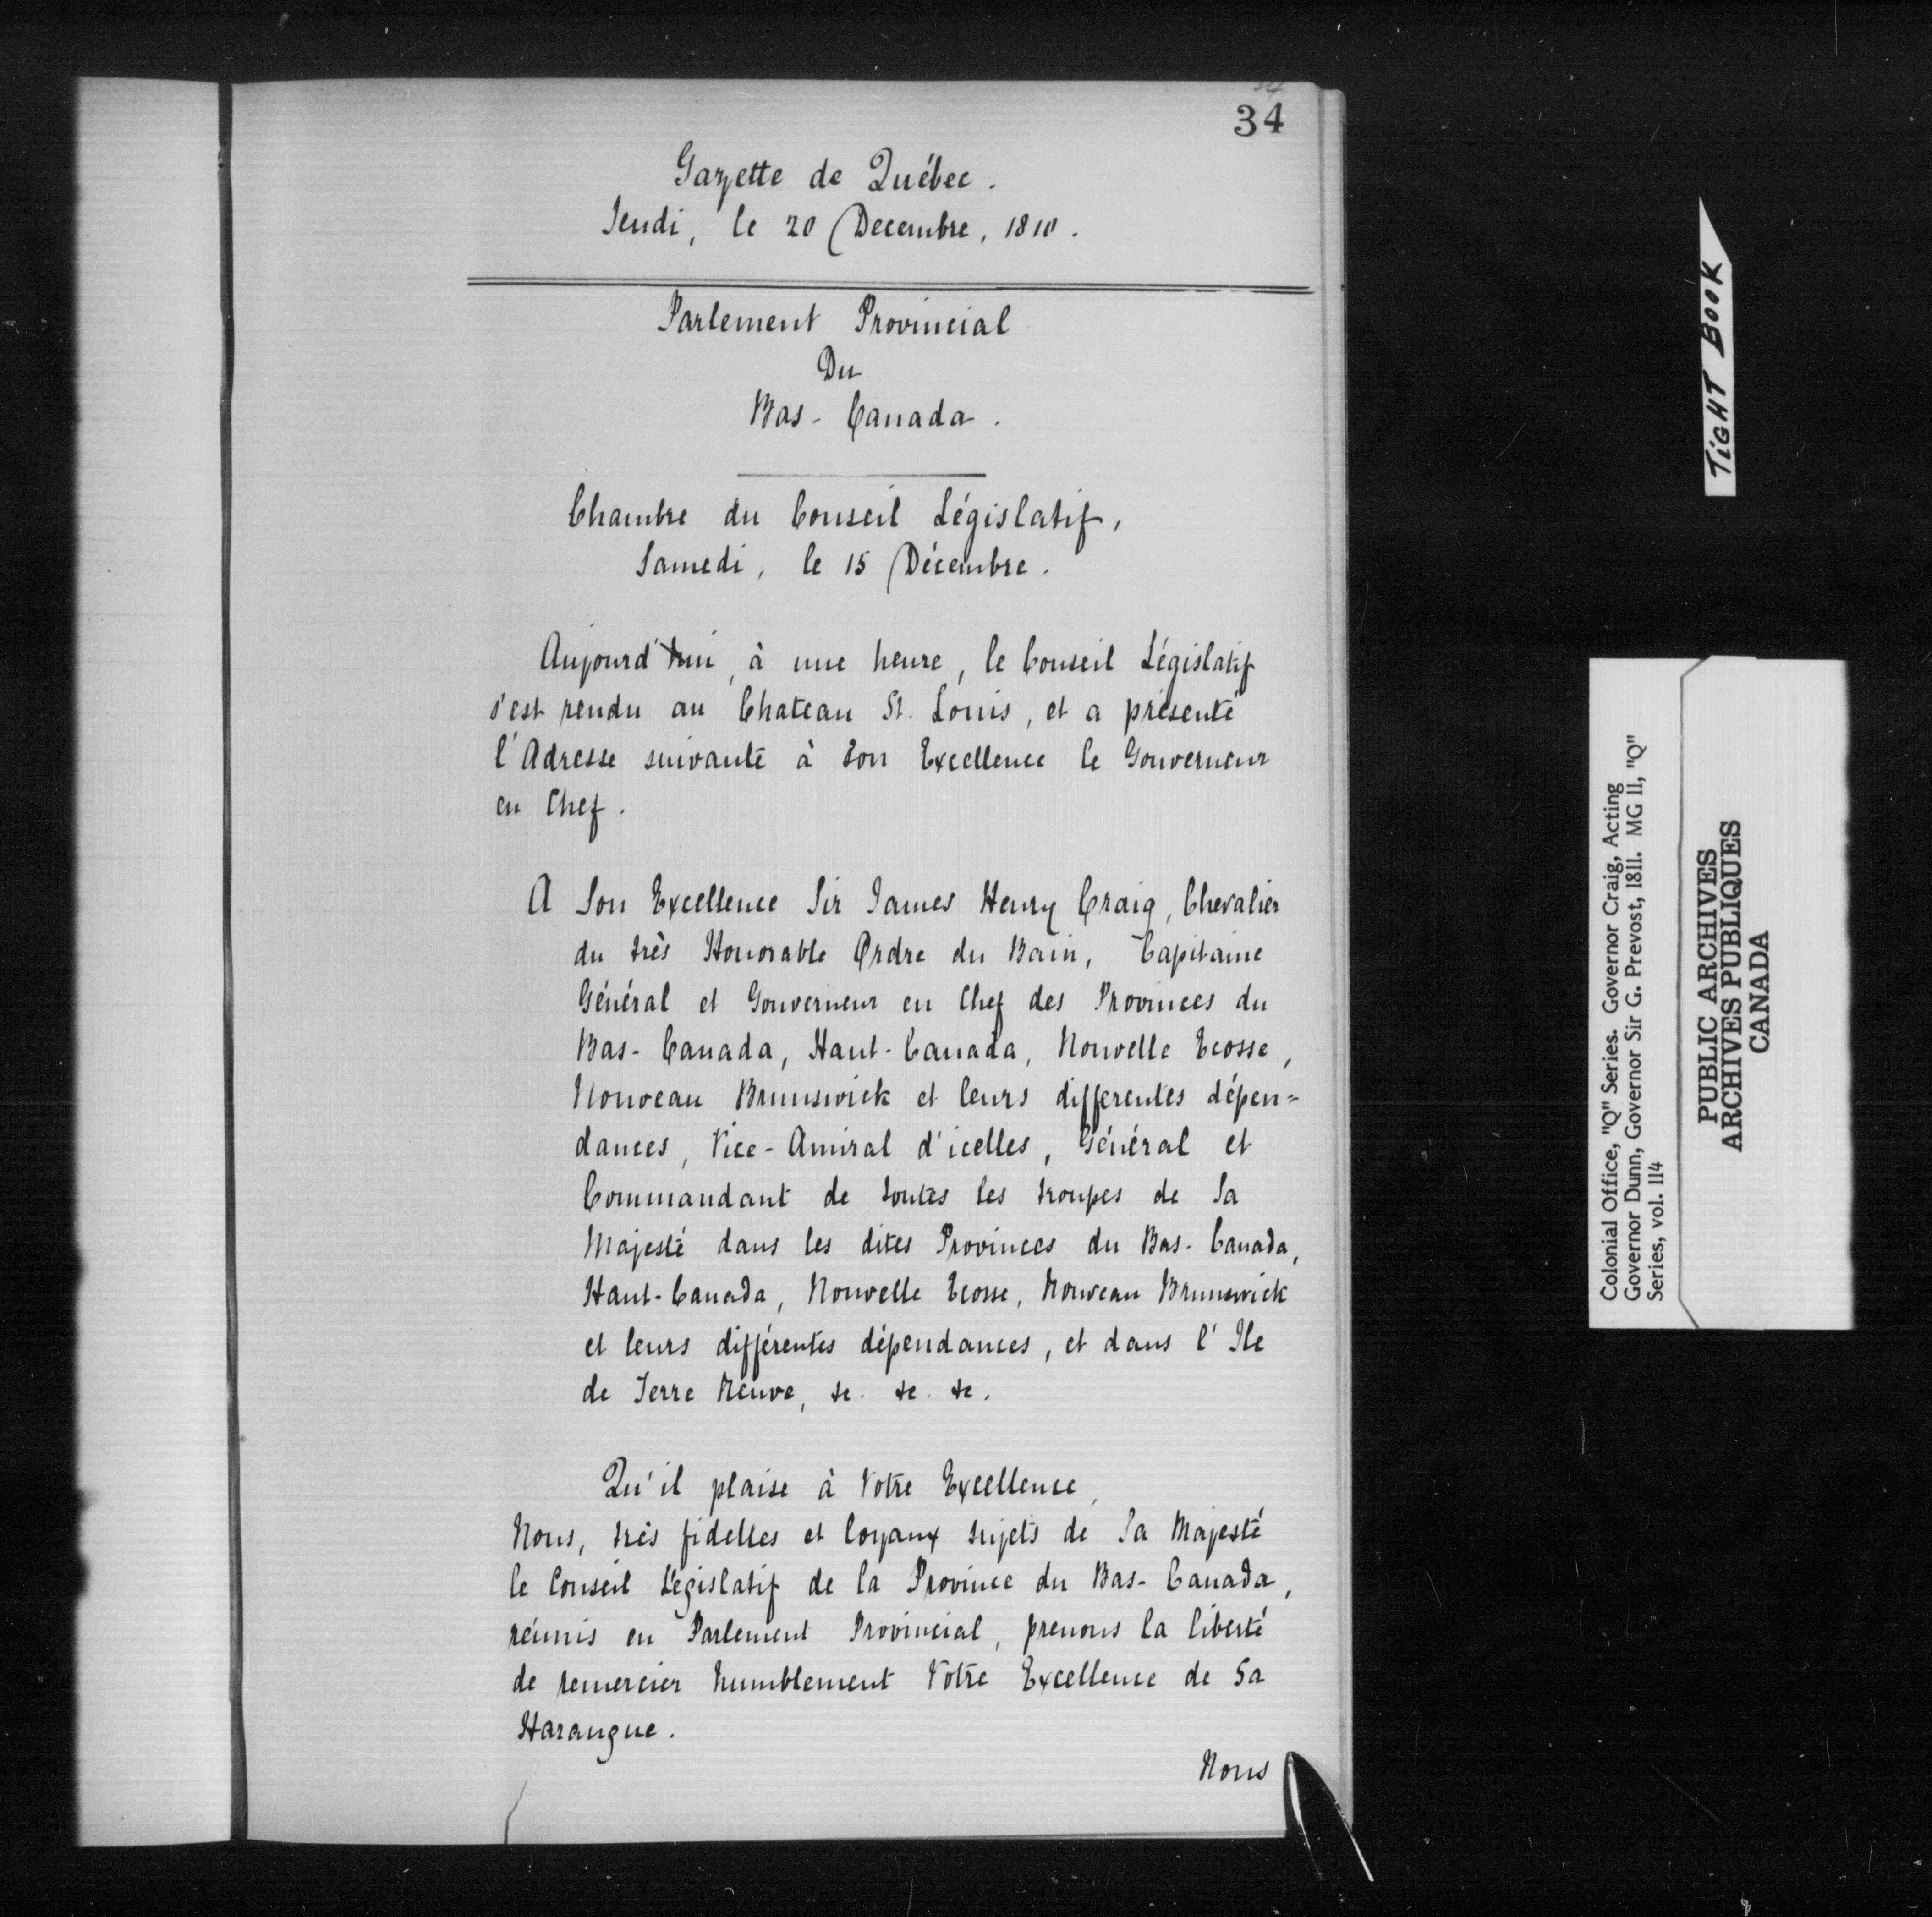 34
34
Gazette de Québec.
Jeudi, le 20 Decembre, 1810.
Parlement Provincial
Du
Bas-Canada.
Chambre du Conseil Législatif,
Samedi, le 15 Décembre.
Aujourd'hui, à une heure, le Conseil Législatif
s'est rendu au Chateau St. Louis, et a présenté
l'Adresse suivante à Son Excellence le Gouverneur
en Chef.
A Son Excellence Sir James Henry Craig, Chevalier
du très Honorable Ordre du Bain, Capitaine
Général et Gouverneur en Chef des Provinces du
Bas-Canada, Haut-Canada, Nouvelle Ecosse,
Nouveau Brunswick et leurs differentes dépen=
dances, Vice-Amiral d'icelles, Général et
Commandant de toutes les troupes de Sa
Majesté dans les dites Provinces du Bas-Canada,
Haut-Canada, Nouvelle Ecosse, Nouveau Brunswick
et leurs différentes dépendances, et dans l'Ile
de Terre Neuve, &c. &c. &c.
Qu'il plaise à Votre Excellence,
Nous, très fidelles et loyaux sujets de Sa Majesté
le Conseil Législatif de la Province du Bas-Canada,
réunis en Parlement Provincial, prenons la liberté
de remercier humblement Votre Excellence de Sa
Harangue.
Nous
TIGHT BOOK
Colonial Office, "Q" Series. Governor Craig, Acting
Governor Dunn, Governor Sir G. Prevost, 1811. MG 11, "Q"
Series, vol. 114
PUBLIC ARCHIVES
ARCHIVES PUBLIQUES
CANADA